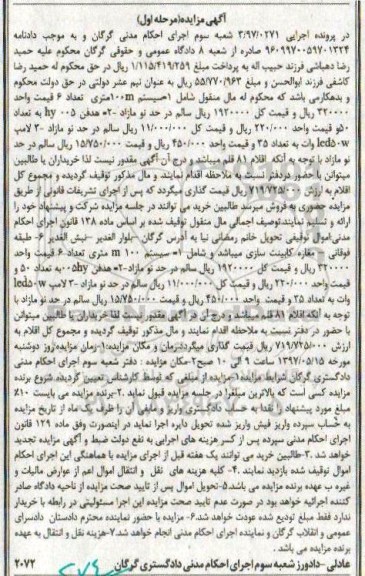 آگهی مزایده(مرحله اول)
در پرونده اجرایی ۳/۹۷/۰۲۷۱ شعبه سوم اجرای احکام مدنی گرگان و به موجب دادنامه
۹۶۰۹۹۷۰۰۵۹۷۰۱۳۲۴ صادره از شعبه ۸ دادگاه عمومی و حقوقی گرگان محکوم علیه حمید
رضا دهباشی فرزند حبیب اله به پرداخت مبلغ ۱/۱۱۵/۴۱۹/۲۵۹ ریال در حق محکوم له حمید رضا
کاشفی فرزند ابوالحسن و مبلغ ۵۵/۷۷۰/۹۶۳ ریال به عنوان نیم عشر دولتی در حق دولت محکوم
و بدهکارمی باشد که محکوم له مال منقول شامل ۱سیستم ۱۰۰mمتری تعداد ۶ قیمت واحد
۳۲۰۰۰۰ ریال و قیمت کل ۱۹۲۰۰۰۰ ریال سالم در حد نو مازاد ۲-هدفن hy ۰۰۵ به تعداد
۵۰و قیمت واحد ۲۲۰/۰۰۰ ریال و قیمت کل ۱۱/۰۰۰/۰۰۰ ریال سالم در حد نو مازاد ۳- لامپ
led۵۰w وات به تعداد ۳۵ و قیمت واحد ۴۵۰/۰۰۰ ریال و قیمت کل ۱۵/۷۵۰/۰۰۰ ریال سالم در حد
نو مازاد با توجه به آنکه اقلام ۸۱ قلم میباشد و درج آن آگهی مقدور نیست لذا خریداران یا طالبین
میتوانن با حضور دردفتر نسبت به ملاحظه اقدام نمایند و مال مذکور توقیف گردیده و مجموع کل
اقلام به ارزش ۷۱۹/۷۲۵/۰۰۰ ریال قیمت گذاری میگردد که پس از اجرای تشریفات قانونی از طریق
مزایده حضوری به فروش میرسد طالبین خرید می توانند در جلسه مزایده شرکت و پیشنهاد خود را
ارائه و تسلیم نمایند.توصیف اجمالی مال منقول توقیف شده بر اساس ماده ۱۳۸ قانون اجرای احکام
مدنی:اموال توقیفی تحویل خانم رمضانی نیا به آدرس گرگان -بلوار الغدیر -نبش الغدیر ۶- طبقه
فوقانی مغازه کابینت سازی میباشد و شامل ۱- سیستم ۱۰۰ m متری تعداد ۶ قیمت واحد
۳۲۰۰۰۰ ریال و قیمت کل ۱۹۲۰۰۰۰ ریال سالم در حد نو مازاد-۲- هدفن ۰۰۵hy به تعداد ۵۰ و
قیمت واحد ۲۲۰/۰۰۰ ریال و قیمت کل ۱۱/۰۰۰/۰۰۰ ریال سالم در حد نو مازاد ۳- لامپ led۵۰w
وات به تعداد ۳۵ و قیمت واحد ۴۵۰/۰۰۰ ریال و قیمت کل ۱۵/۷۵۰/۰۰۰ ریال سالم در حد نو مازاد با
توجه به آنکه اقلام ۸۱ قلم میباشد و درج آن در آگهی مقدور نیست لذا خریداران یا طالبین میتوانن
با حضور در دفتر نسبت به ملاحظه اقدام نمایند و مال مذکور توقیف گردیده و مجموع کل اقلام به
ارزش ۷۱۹/۷۲۵/۰۰۰ ریال قیمت گذاری میگردد.زمان و مکان مزایده:۱-زمان مزایده:روز دوشنبه
مورخه ۱۳۹۷/۰۵/۱۵ ساعت ۹ الی ۱۰ صبح۲-مکان مزایده : دفتر شعبه سوم اجرای احکام مدنی
دادگستری گرگان شرایط مزایده ۱-مزایده از مبلغی که توسط کارشناس تعیین گردیده شروع برنده
مزایده کسی است که بالاترین مبلغرا در جلسه مزایده قبول نماید .۲-برنده مزایده می بایست ۱۰٪
مبلغ مورد پیشنهاد را نقدا به حساب دادگستری واریز و مابقی آن را ظرف یک ماه از تاریخ مزایده
به حساب سپرده واریز فیش واریز شده تحویل دایره اجرا نماید در اینصورت وفق ماده ۱۲۹ قانون
اجرای احکام مدنی سپرده پس از کسر هزینه های اجرایی به نفع دولت ضبط و آگهی مزایده تجدید
خواهد شد .۳-طالبین خرید می توانند یک هفته قبل از اجرای مزایده با هماهنگی این اجرای احکام
اموال توقیف شده بازدید نمایند .۴- کلیه هزینه های نقل و انتقال اموال اعم از عوارض مالیات و
غیره ب عهده برنده مزایده می باشد.۵-تحویل اموال پس از تایید صحت مزایده از ناحیه دادگاه صادر
کننده اجرائیه خواهد بود در صورت عدم تایید صحت مزایده این اجرا مسئولیتی در رابطه با خریدار
ندارد فقط مبلغ تودیع شده عودت خواهد شد.۶- مزایده با حضور نماینده محترم دادستان دادسرای
عمومی و انقلاب گرگان و نماینده اجرای احکام مدنی انجام خواهد شد.۷-هزینه نقل و انتقال به عهده
برنده مزایده می باشد .
عادلی -دادورز شعبه سوم اجرای احکام مدنی دادگستری گرگان ۲۰۷۲